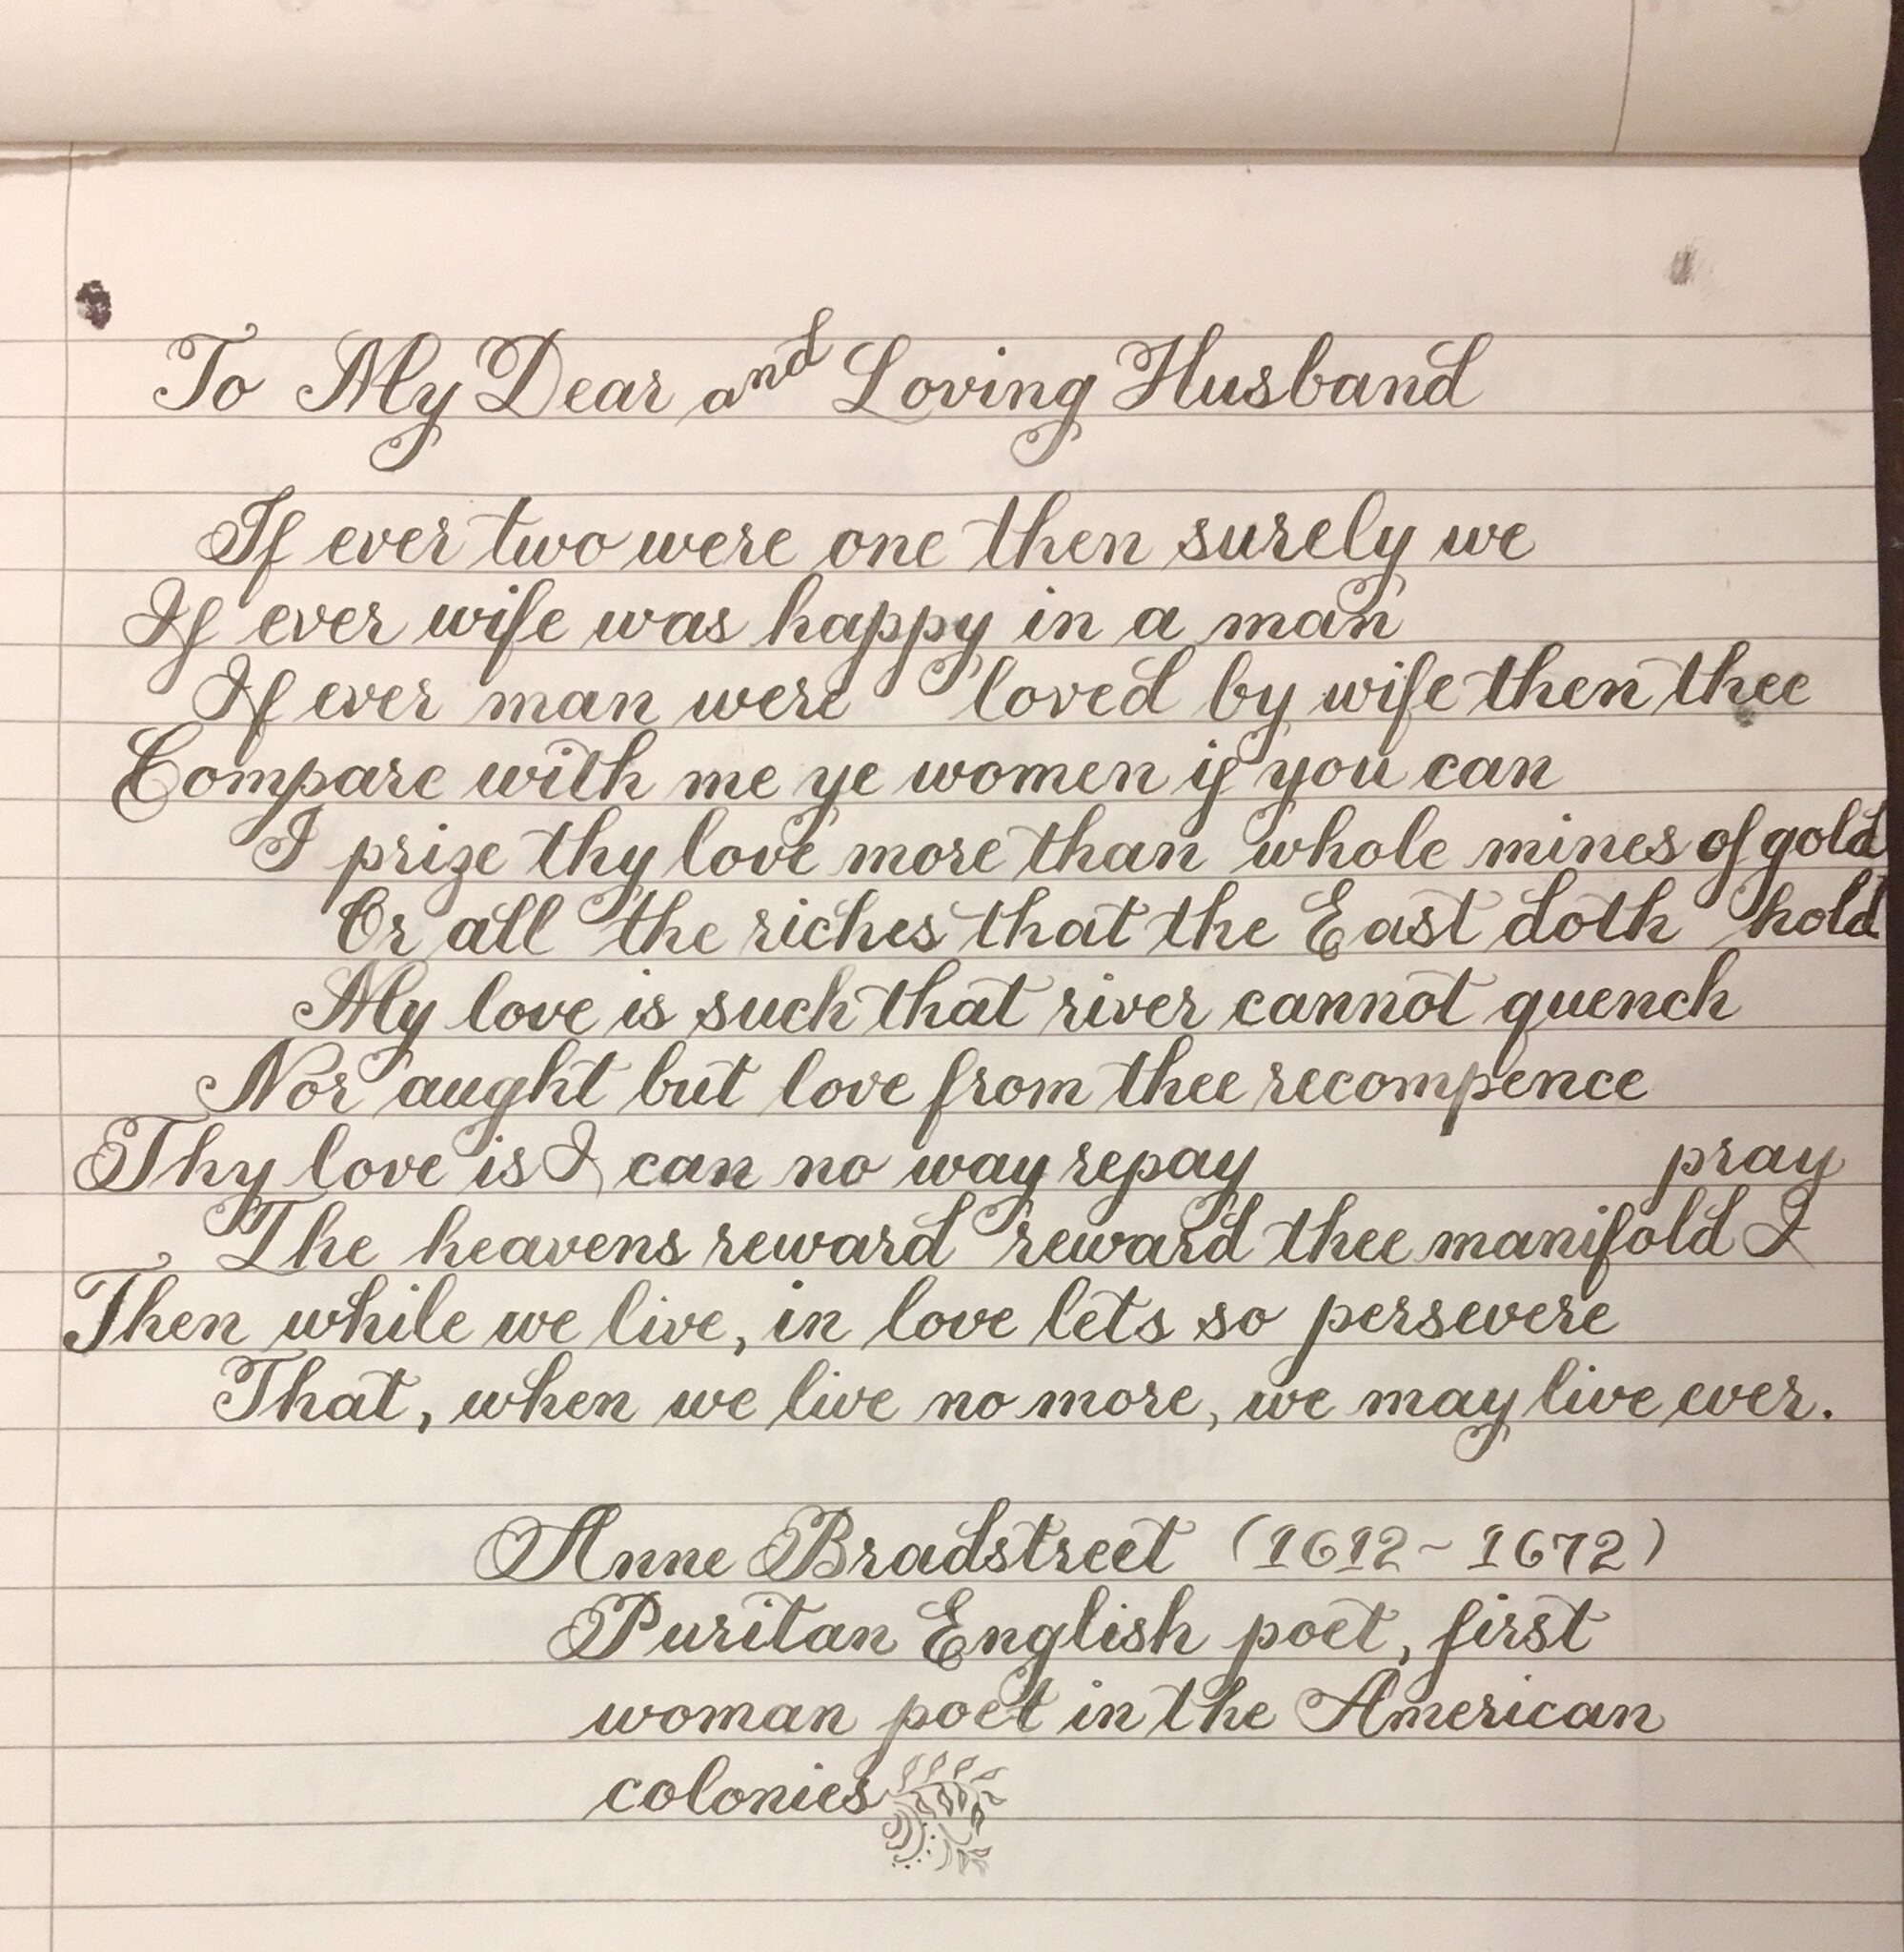 To My Dear and Loving Husband
If ever two were one then surely we
If ever wife was happy in a man
If ever man were loved by wife then thee
Compare with me ye women if you can
I prize thy love more than whole mines of gold
Or all the riches that the East doth hold
My love is such that river cannot quench
Nor aught but love from thee recompence
Thy love is I can no way repay
The heavens reward reward thee manifold I pray
Then while we live, in love lets so persevere
That, when we live no more, we may live ever.
Anne Bradstreet (1612~1672)
Puritan English poet, first
woman poet in the American
colonies